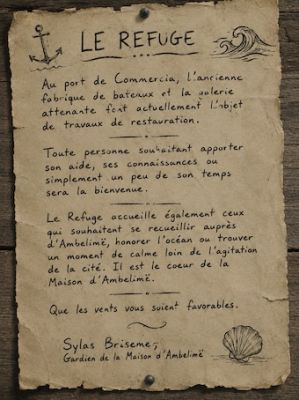 LE REFUGE
Au port de Commercia, L'ancienne
fabrique de bateaux et la galerie
attenante font actuellement l'objet
de travaux de restauration.
Toute personne souhaitant apporter
son aide, ses connaissances ou
simplement un peu de son temps
sera la bienvenue.
Le Refuge accueille également ceux
qui souhaitent se recueillir auprès
d'Ambelimë, honorer l'océan ou trouver
un moment de calme loin de l'agitation
de la cité. Il est le coeur de la
Maison d'Ambelimë.
Que les vents vous soient favorables.
Sylas Briseme,
Gardien de la Maison d'Ambelimë